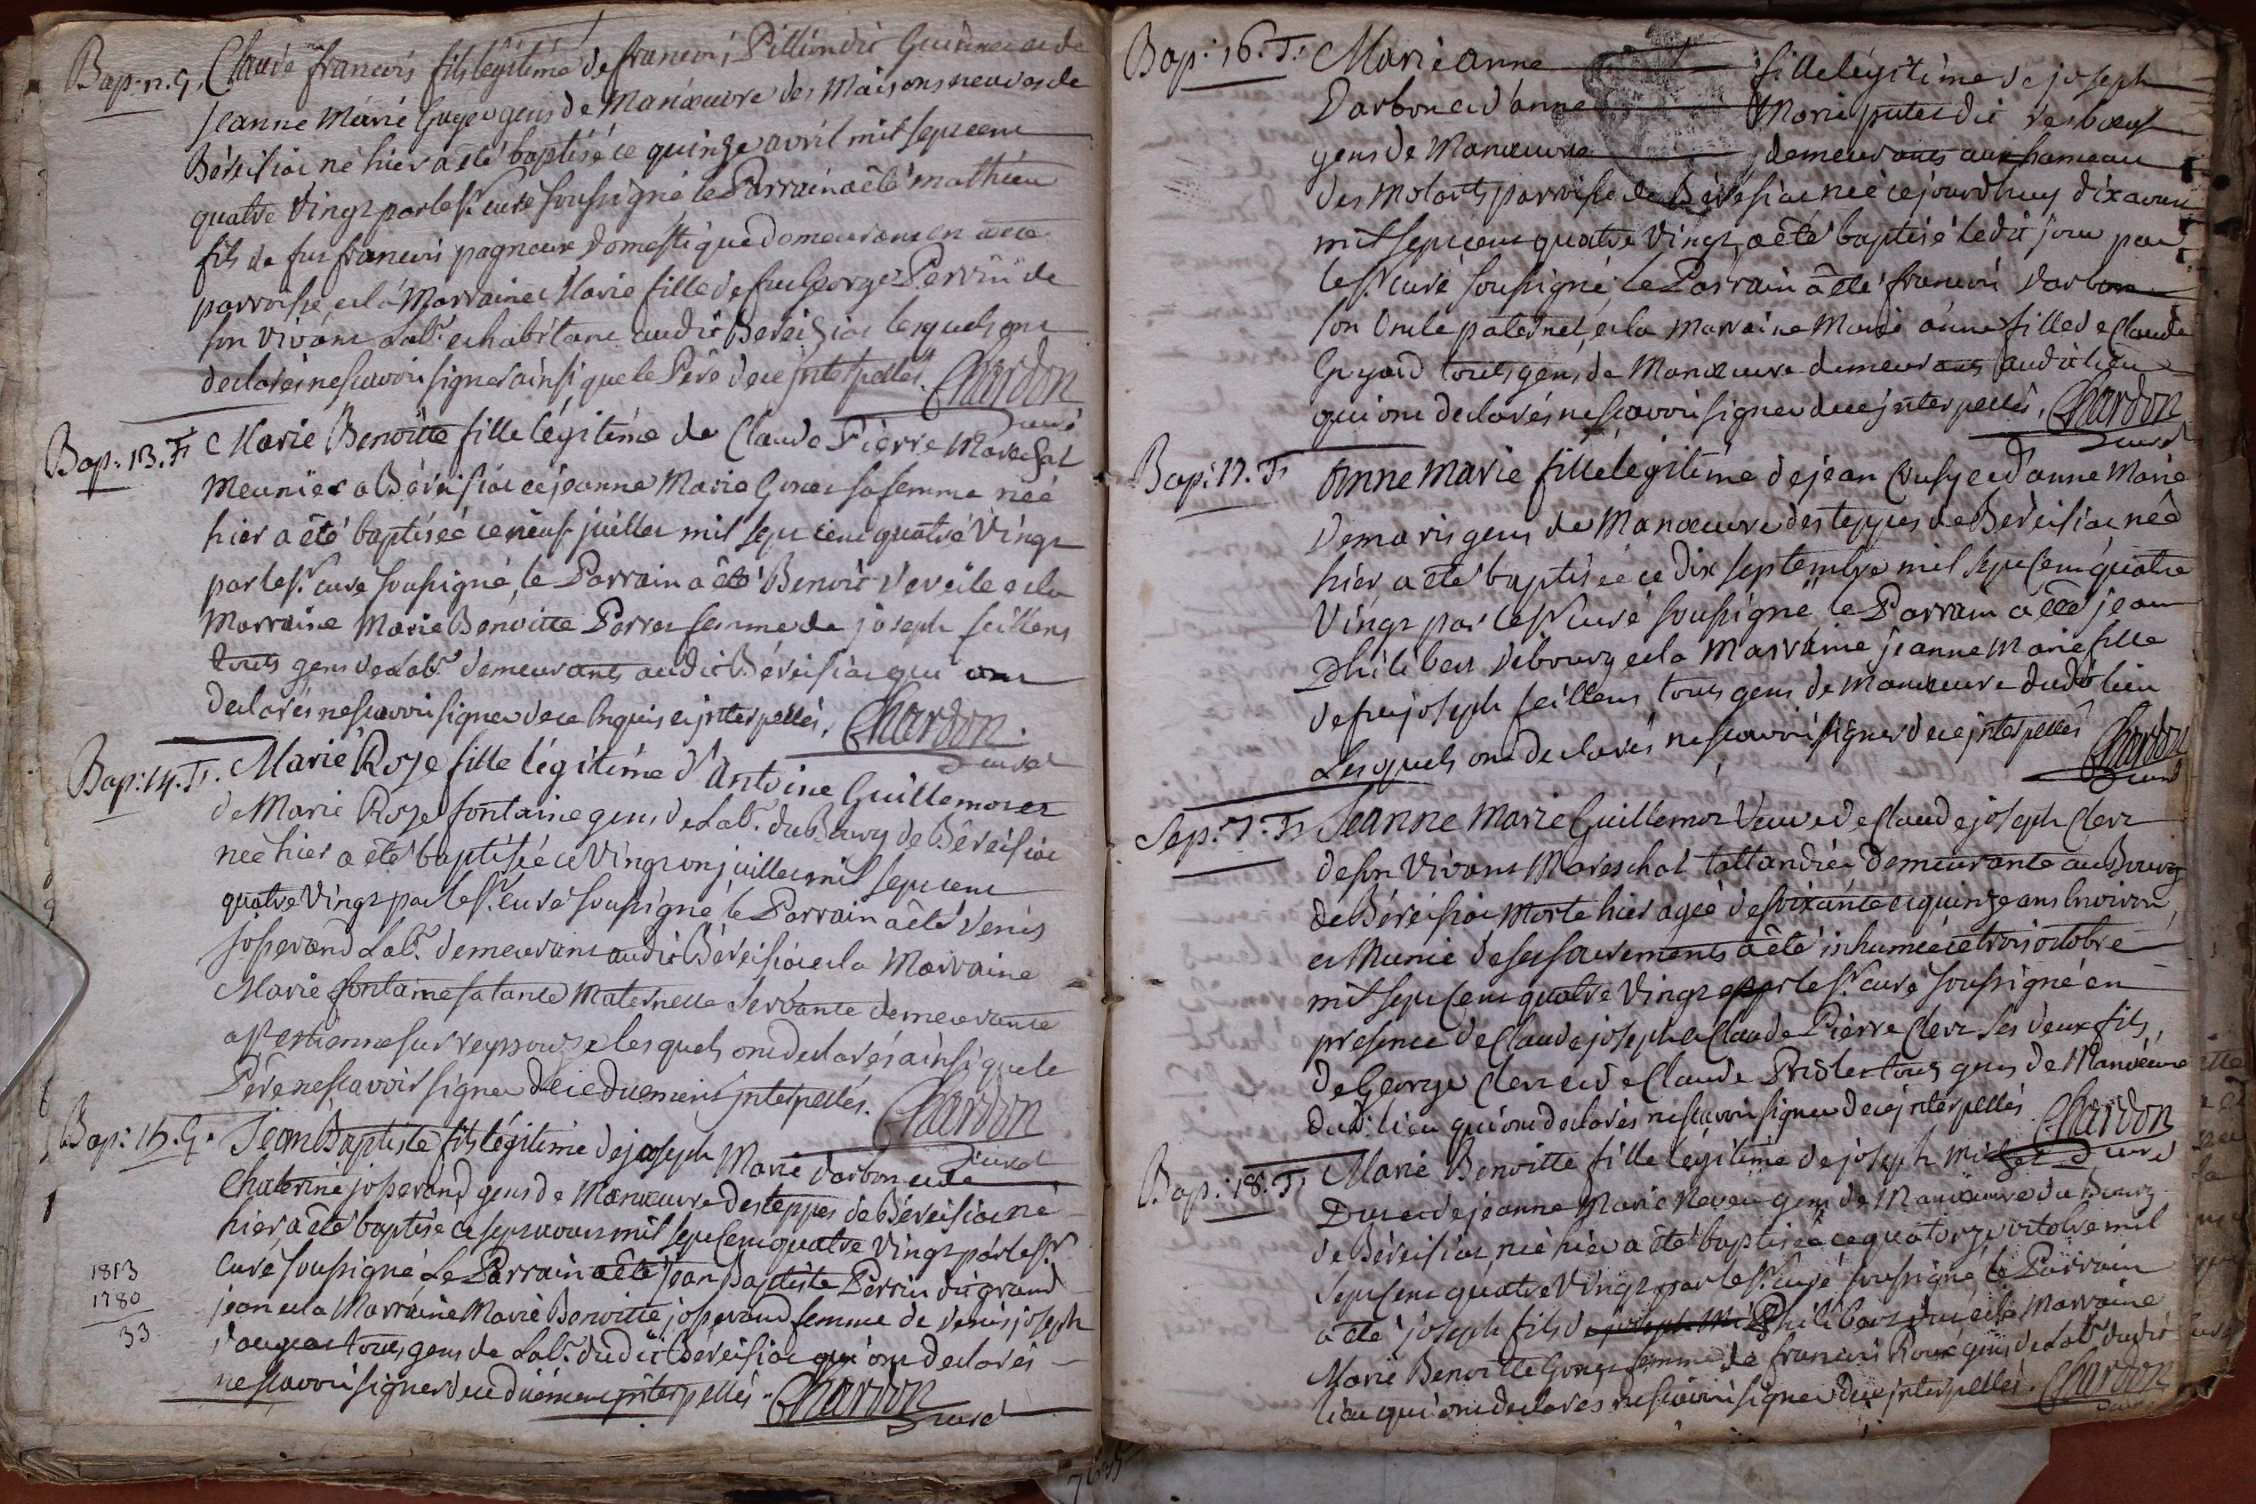 Bap: n. G. Claude francois fils légitime de francois Pillion dit Guidon et de
Jeanne Marie Guyot gens de Manœuvre des Maisons neuves de
Béréisiac né hier a été baptisé ce quinze avril mil sept cent
quatre Vingt par le Sr. curé soussigné le Parrain a été mathieu
fils de fut francois pagneux domestique demeurant en cette
parroisse, et la Marraine Marie fille de feu George Perrin de
son vivant Labr. et habitant audit Béréisiac lesquels ont
declarés ne scavoir signer ainsi que le Père de ce jnterpellés. Chardon
curé
Bap: 13. F. Marie Benoitte fille légitime de Claude Pierre Mareschal
Meunier a Béréisiac et jeanne Marie Gonet sa femme neé
hier a été baptiseé ce neuf juillet mil sept cent quatre Vingt
par le Sr. curé soussigné, le Parrain a été Benoit et la
Marraine Marie Benoitte Perret femme de joseph feillens
touts gens de Labr. demeurants audit Béréisiac qui ont
declarés ne scavoir signer de ce enquis et jnterpellés. Chardon
curé
Bap: 14. F. Marie Roze fille légitime d'Antoine Guillemot et
de Marie Roze fontaine gens de Labr. du Bourg de Béréisiac
neé hier a été baptiseé ce Vingt un juillet mil sept cent
quatre Vingt par le Sr. curé soussigné, le Parrain a été denis
josserand Labr. demeurant audit Béréisiac et la Marraine
Marie fontaine sa tante Maternelle servante demeurante
a St estienne sur reyssouze lesquels ont declarés ainsi que le
Père ne scavoir signer de ce duement jnterpellés. Chardon
curé
Bap: 15. G. Jean Baptiste fils légitime de joseph Marie darbon et de
Chaterine josserand gens de Manœuvre des teppes de Béréisiac né
hier a été baptisé ce sept aoust mil sept cent quatre Vingt par le Sr.
curé soussigné, Le Parrain a été Jean Baptiste Perrin dit grand
jean et la Marraine Marie Benoitte josserand femme de denis joseph
tous gens de Labr. dudit Béréisiac qui ont declarés
ne scavoir signer de ce duement jnterpellés. Chardon
curé
1813
1780
33
Bap: 16. F. Marie anne fille légitime de joseph
Darbon et d'anne Marie putet dit desboeuf
gens de Manœuvre demeurants au hameau
des Molards parroisse de Béréisiac neé ce jourd'huy dix aoust
mil sept cent quatre Vingt, a été baptisé ledit jour par
le Sr. curé soussigné le Parrain a été francois darbon
son Oncle paternel, et la Marraine Marie anne fille de Claude
Guyard touts gens de Manœuvre demeurants audit lieu
qui ont declarés ne scavoir signer de ce jnterpellés. Chardon
curé
Bap: 17. F. Anne Marie fille légitime de jean et d'anne Marie
Demaris gens de Manœuvre des teppes de Béréisiac neé
hier, a été baptiseé ce dix septembre mil sept cent quatre
Vingt par le Sr. curé soussigné le Parrain a été jean
Philibert débourg et la Marraine jeanne Marie fille
de feu joseph feillens touts gens de Manœuvre dudit lieu
Lesquels ont declarés ne scavoir signer de ce jnterpellés Chardon
curé
Sep: 7. F. Jeanne Marie Guillemot Veuve de Claude joseph Clerc
de son Vivant Mareschal tattandier demeurante au Bourg
de Béréisiac Morte hier ageé de soixante et quinze ans environ,
et Munie de ses sacrements a été inhumeé ce trois octobre
mil sept cent quatre Vingt par le Sr. curé soussigné en
presence de Claude joseph et Claude Pierre Clerc ses deux fils,
de George Clerc et de Claude Pristet tous gens de Manœuvre
dud. lieu qui ont declarés ne scavoir signer de ce jnterpellés Chardon
curé
Bap: 18. F. Marie Benoitte fille légitime de joseph Michel
Duc et de jeanne Marie Neveu gens de Manœuvre du Bourg
de Béréisiac, neé hier a été baptiseé ce quatorze octobre mil
sept cent quatre Vingt par le Sr. curé soussigné, le Parrain
a été joseph fils de Philibert duc et la Marraine
Marie Benoitte Gonet femme de francois Roux gens de Labr. dudit
lieu qui ont declarés ne scavoir signer de ce jnterpellés. Chardon
curé